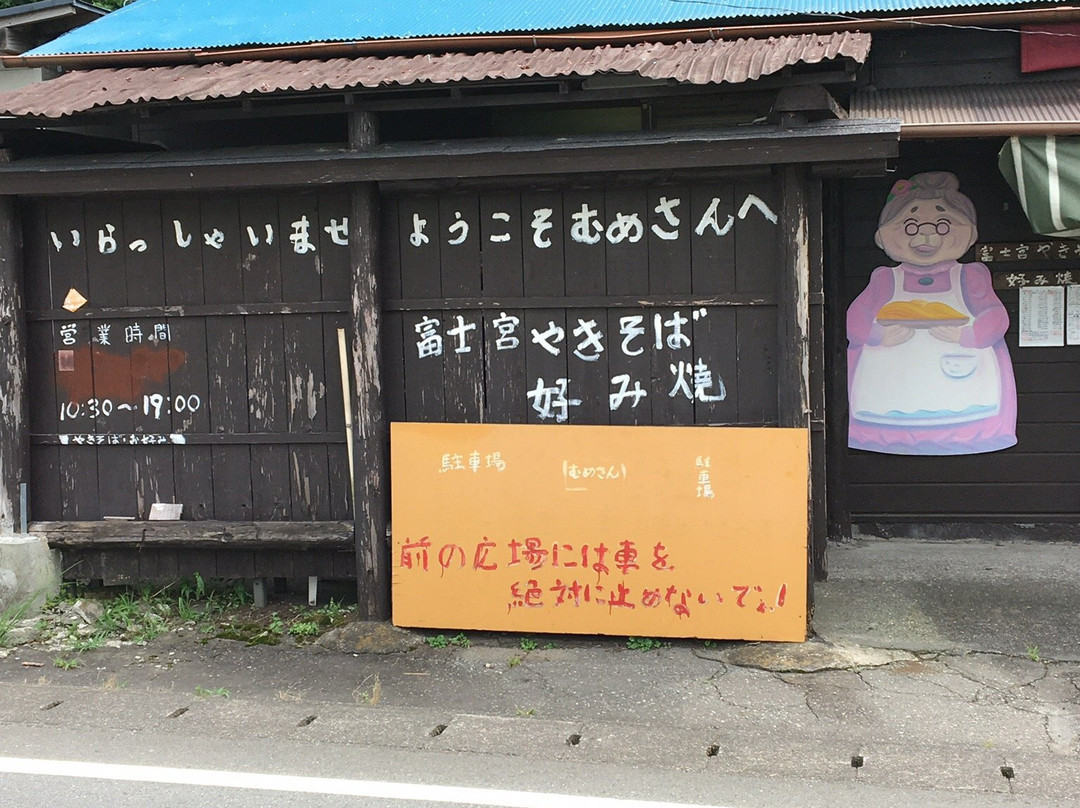 いらっしゃいませ
ようこそむめさんへ
営業時間
10:30～19:00
やきそばお好み
富士宮やきそば
好み焼
駐車場
(むめさん)
駐車場
前の広場には車を
絶対に止めないでネ!
富士宮やき
好み焼